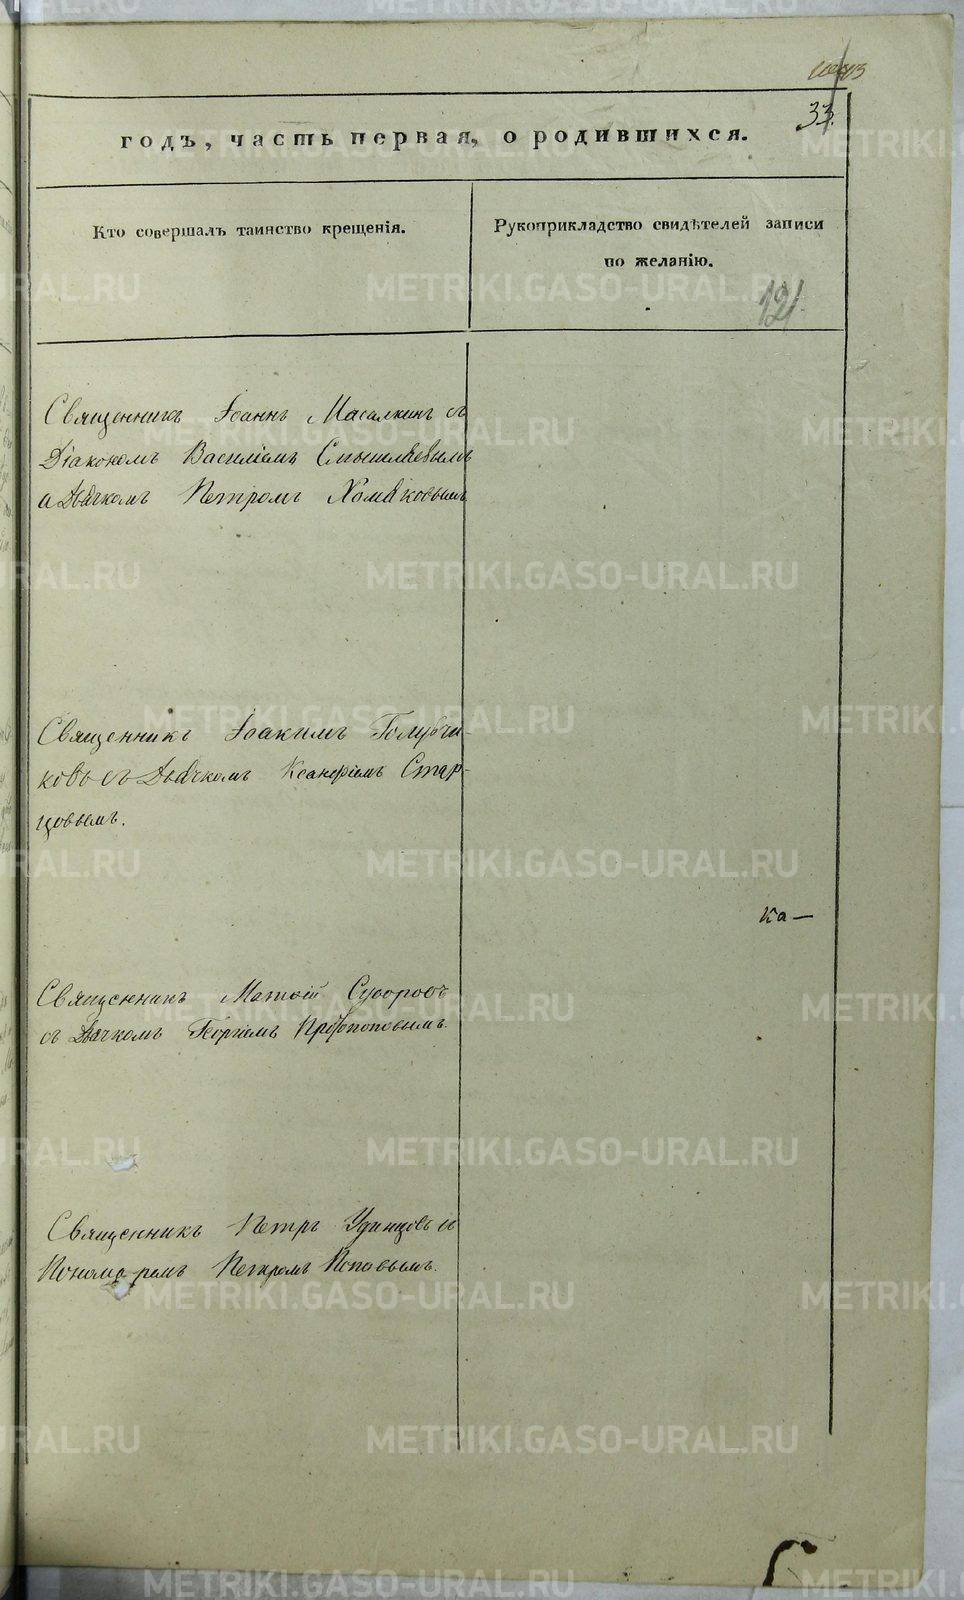 33.
годъ, часть первая, о родившихся.
Кто совершалъ таинство крещенія.
Рукоприкладство свидѣтелей записи
по желанію.
121.
Священникъ Іоаннъ Масалкинъ съ
Діакономъ Василіемъ Смышляевымъ
и Дьячкомъ Петромъ Хомяковымъ
Священникъ Іоакимъ Голубчи-
ковъ съ Дьячкомъ Ксанфіемъ Стар-
цовымъ.
ка—
Священникъ Матѳій Суворовъ
съ Дьячкомъ Георгіемъ Протопоповымъ.
Священникъ Петръ Удинцовъ съ
Пономаремъ Петромъ Поповымъ.
METRIKI.GASO-URAL.RU